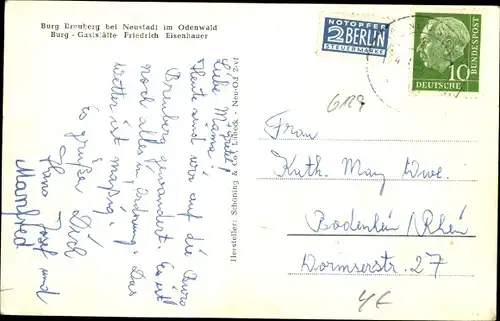 Burg Breuberg bei Neustadt im Odenwald
Burg - Gaststätte Friedrich Eisenhauer
NOTOPFER
2 BERLIN
STEUERMARKE
DEUTSCHE BUNDESPOST
10
6187
Liebe Mama!
Heute sind wir auf die Burg
Breuberg gewandert. Es ist
noch alles in Ordnung. Das
Wetter ist mäßig.
Es grüßen Dich
Hans Josef und
Manfred
Hersteller: Schöning & Co., Lübeck - Neu-Od
Frau
Kath. May Wwe.
Bodenheim / Rhein
Wormserstr. 27
4€